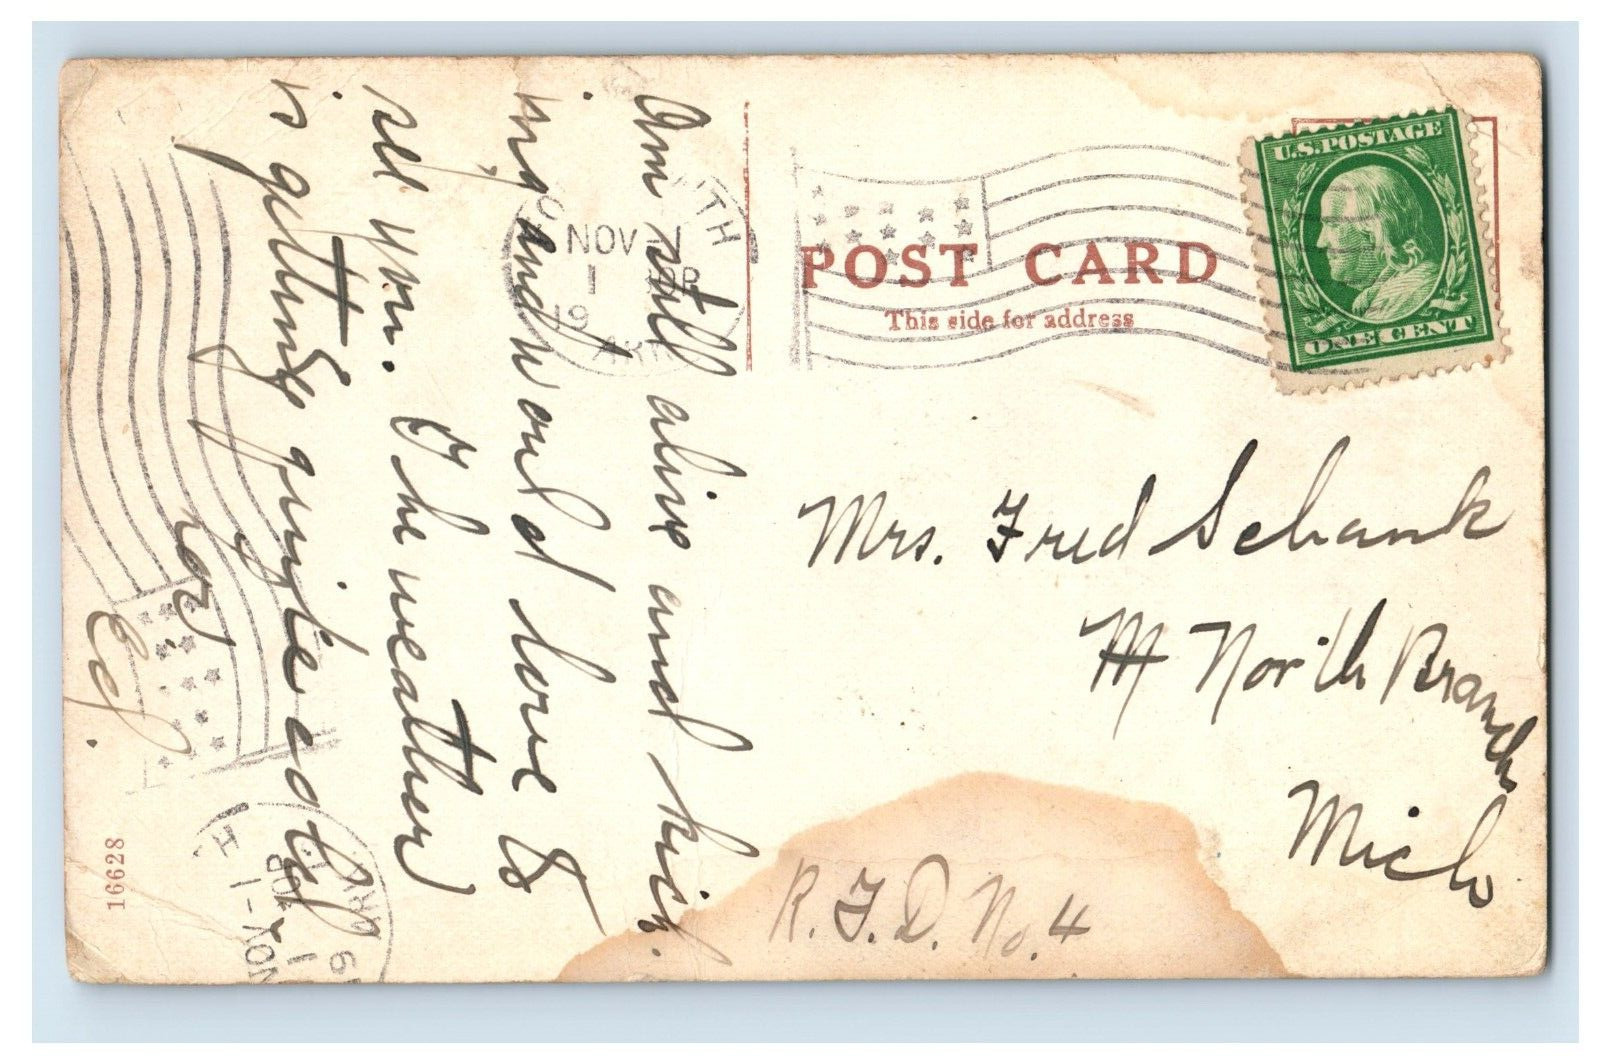 Am still alive and kick
ing and would love to
see you. The weather
is getting quite cold
now
Ed.
16628
NOV - 1
1
19
ARK
POST CARD
This side for address
U.S. POSTAGE
ONE CENT
Mrs. Fred Schank
North Branch
Mich
R.F.D. No. 4